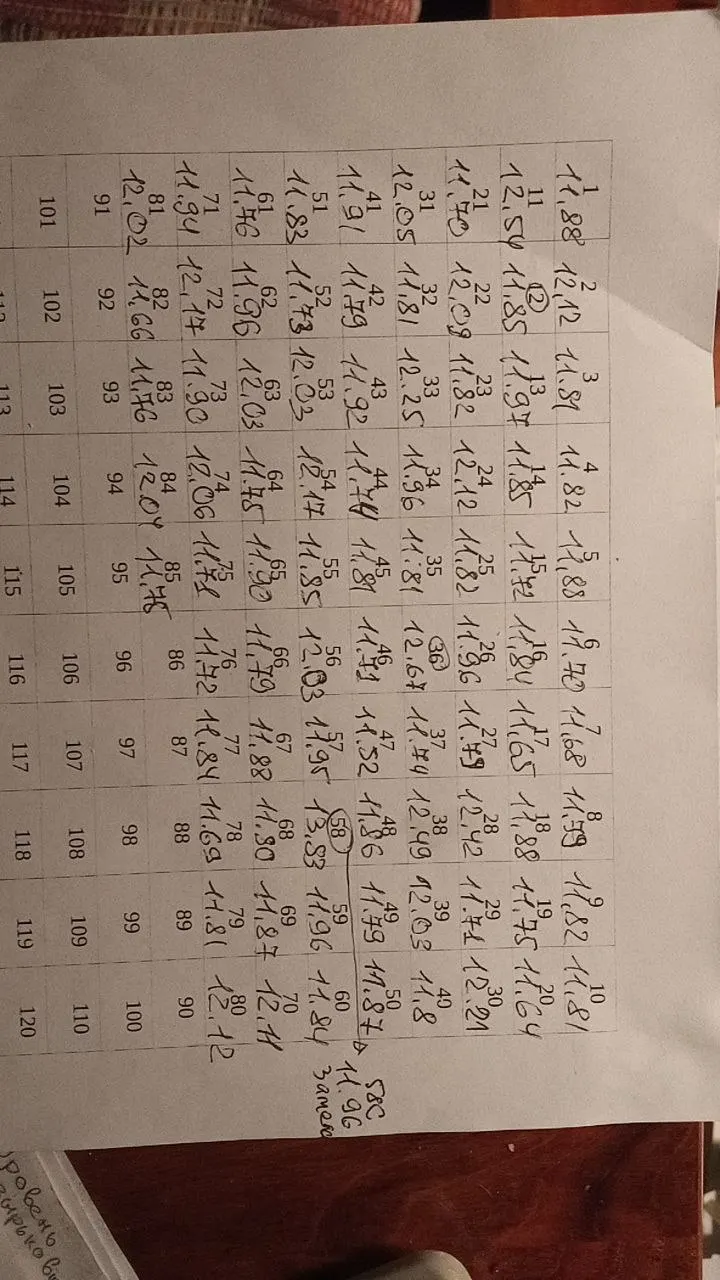 1 2 3 4 5 6 7 8 9 10
11.88 12.12 11.81 11.82 11.88 11.70 11.68 11.79 11.82 11.81
11 12 13 14 15 16 17 18 19 20
12.54 11.85 11.97 11.85 11.72 11.84 11.65 11.88 11.75 11.64
21 22 23 24 25 26 27 28 29 30
11.70 12.09 11.82 12.12 11.82 11.96 11.79 12.42 11.71 12.21
31 32 33 34 35 36 37 38 39 40
12.05 11.81 12.25 11.96 11.81 12.67 11.74 12.49 12.03 11.8
41 42 43 44 45 46 47 48 49 50
11.91 11.79 11.92 11.74 11.81 11.71 11.52 11.86 11.79 11.87
58С
11.96
51 52 53 54 55 56 57 58 59 60
11.83 11.73 12.03 12.17 11.85 12.03 11.95 13.83 11.96 11.84
61 62 63 64 65 66 67 68 69 70
11.76 11.96 12.03 11.75 11.90 11.79 11.88 11.80 11.87 12.11
71 72 73 74 75 76 77 78 79 80
11.94 12.17 11.90 12.06 11.71 11.72 11.84 11.69 11.81 12.12
81 82 83 84 85 86 87 88 89 90
12.02 11.66 11.76 12.04 11.76
91 92 93 94 95 96 97 98 99 100
101 102 103 104 105 106 107 108 109 110
113 114 115 116 117 118 119 120